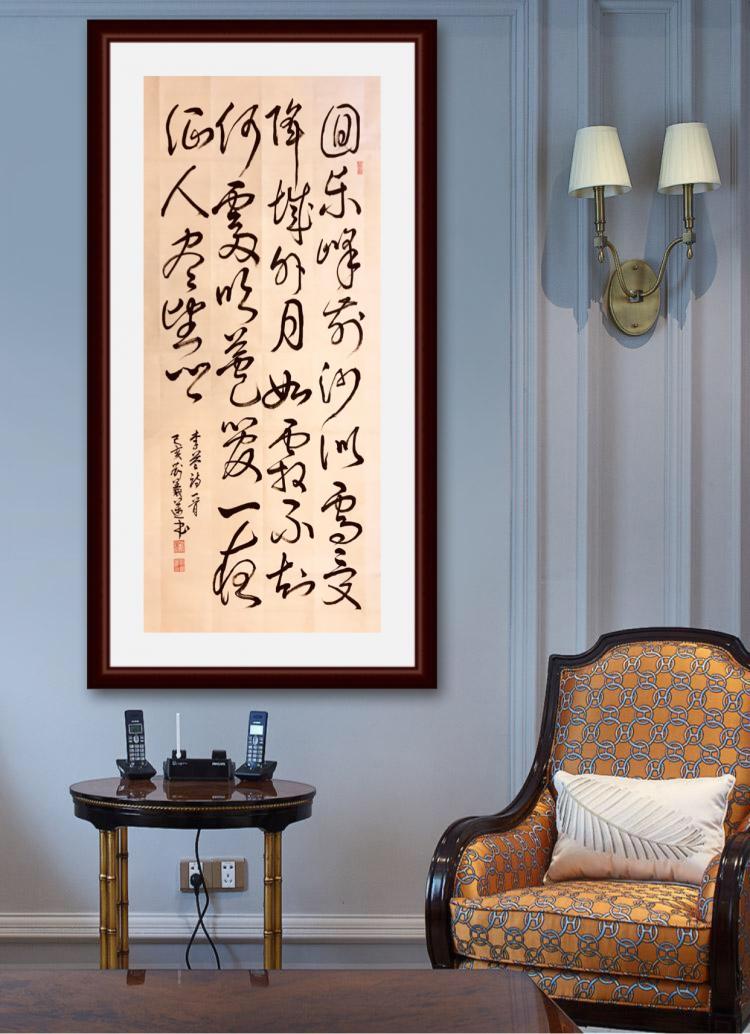 回乐峰前沙似雪受
降城外月如霜不知
何處吹芦管一夜
征人尽望乡
李益诗一首
己亥 书